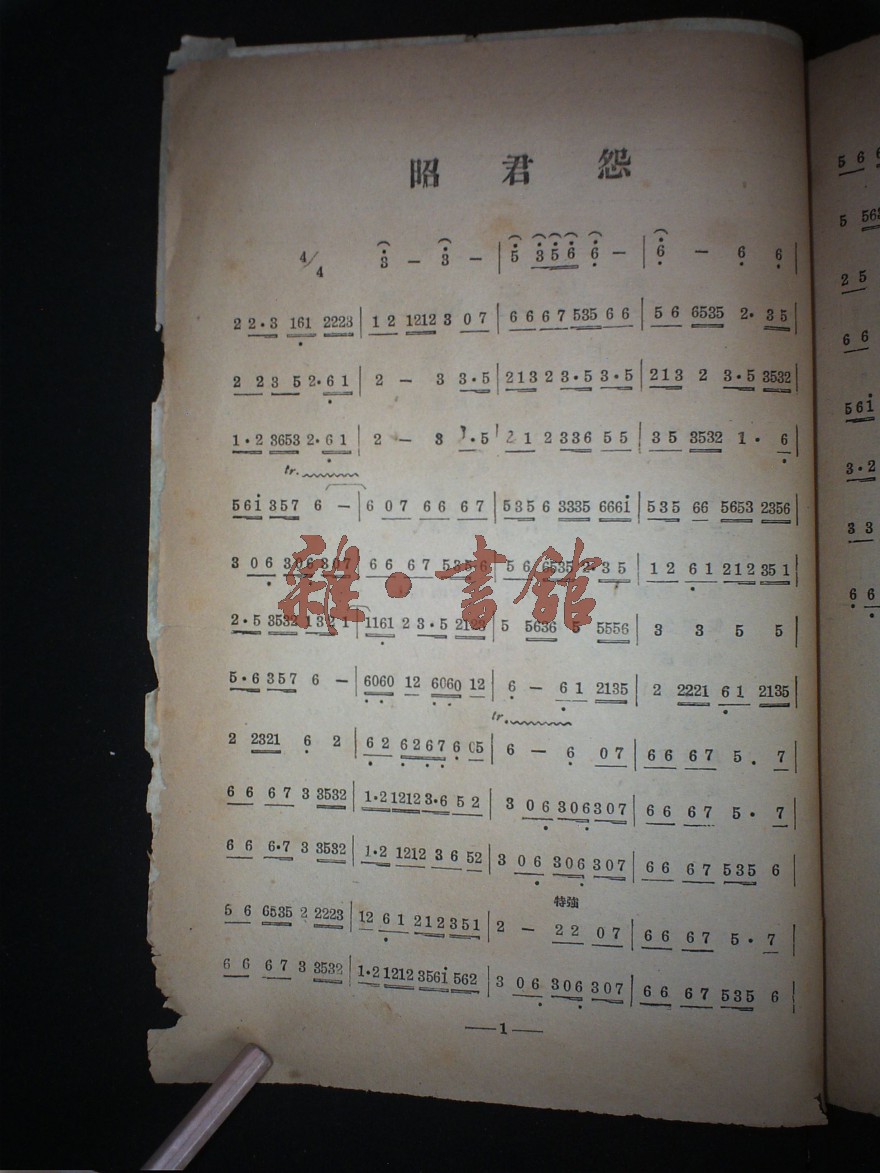 昭君怨
4/4 3 — 3 — | 5 3 5 6 6 — | 6 — 6 6 |
2 2·3 161 2223 | 1 2 1212 3 0 7 | 6 6 6 7 535 6 6 | 5 6 6535 2· 3 5 |
2 2 3 5 2·6 1 | 2 — 3 3·5 | 213 2 3·5 3·5 | 213 2 3·5 3532 |
1·2 3653 2·6 1 | 2 — 3 ·5 | 2 1 2 336 5 5 | 3 5 3532 1· 6 |
tr.
56i 357 6 — | 6 0 7 6 6 6 7 | 535 6 3335 666i | 535 66 5653 2356 |
3 0 6 306 307 | 6 6 6 7 535 6 | 5 6 6535 2· 3 5 | 1 2 6 1 212 351 |
2·5 3532 1321 | 1161 2 3·5 2123 | 5 5636 5 5556 | 3 3 5 5 |
5·6 357 6 — | 6060 12 6060 12 | 6 — 6 1 2135 | 2 2221 6 1 2135 |
tr.
2 2321 6 2 | 6 2 6267 6 05 | 6 — 6 0 7 | 6 6 6 7 5 . 7 |
6 6 6 7 3 3532 | 1·2 1212 3·6 5 2 | 3 0 6 306 307 | 6 6 6 7 5· 7 |
6 6 6·7 3 3532 | 1·2 1212 3 6 52 | 3 0 6 306 307 | 6 6 6 7 535 6 |
特強
5 6 6535 2 2223 | 12 6 1 212 351 | 2 — 2 2 0 7 | 6 6 6 7 5· 7 |
6 6 6 7 3 3532 | 1·2 1212 356i 562 | 3 0 6 306 307 | 6 6 6 7 535 6
—1—
5 6
5
2 5
6 6
56i
3·2
3 3
6
雜·書館